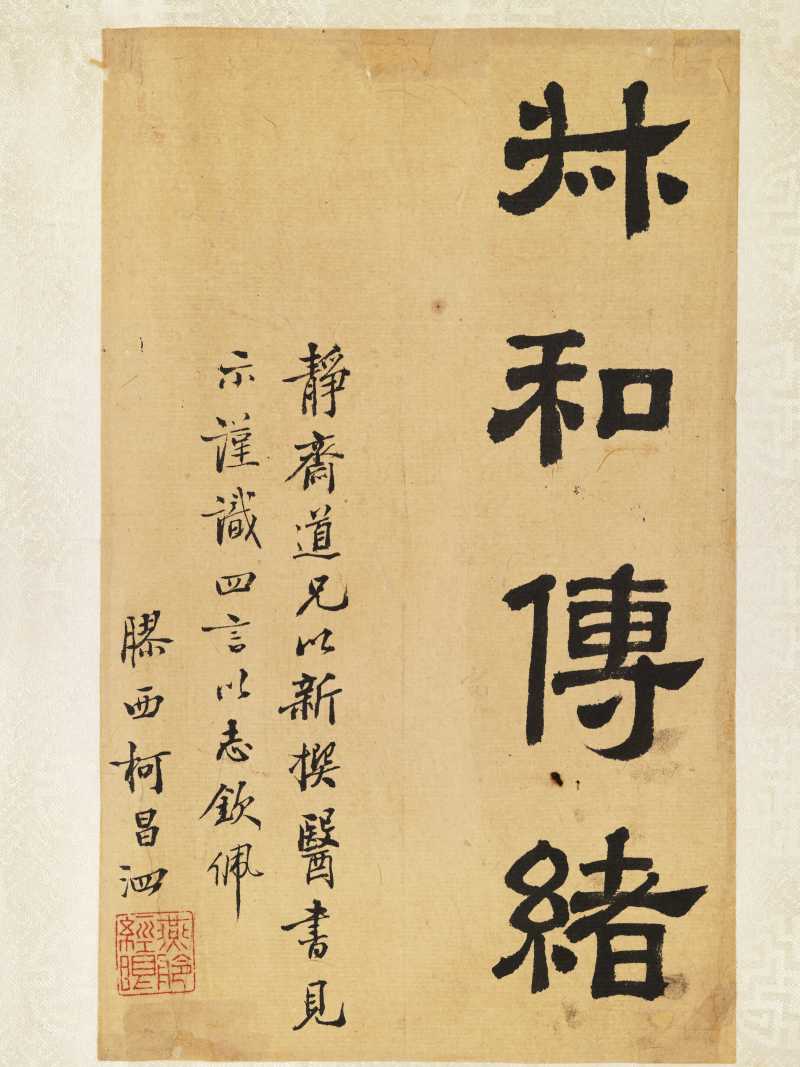 叔和傳緒
靜齋道兄以新撰醫書見
示謹識四言以志欽佩
膠西柯昌泗
燕舲
經眼